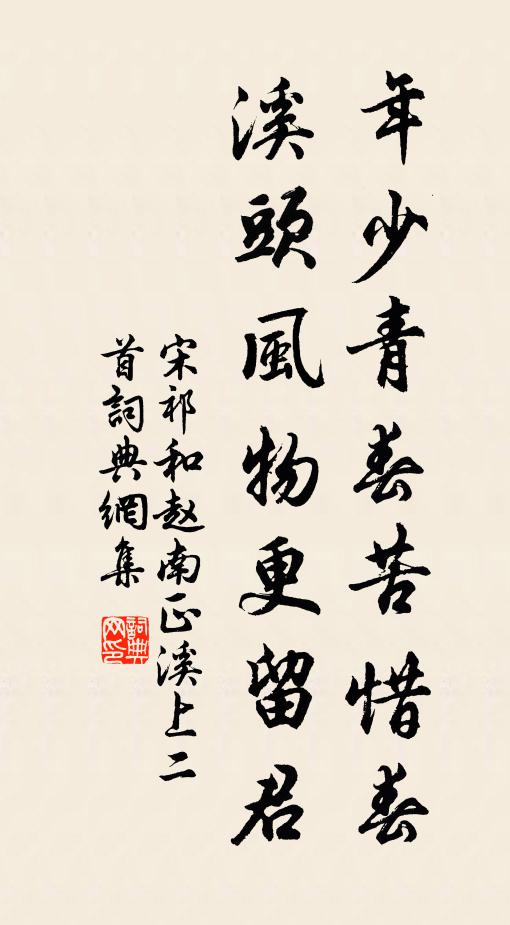 年少青春苦惜春
溪頭風物更留君
宋祁和赵南正溪上二
首詞典網集
詞典
网印